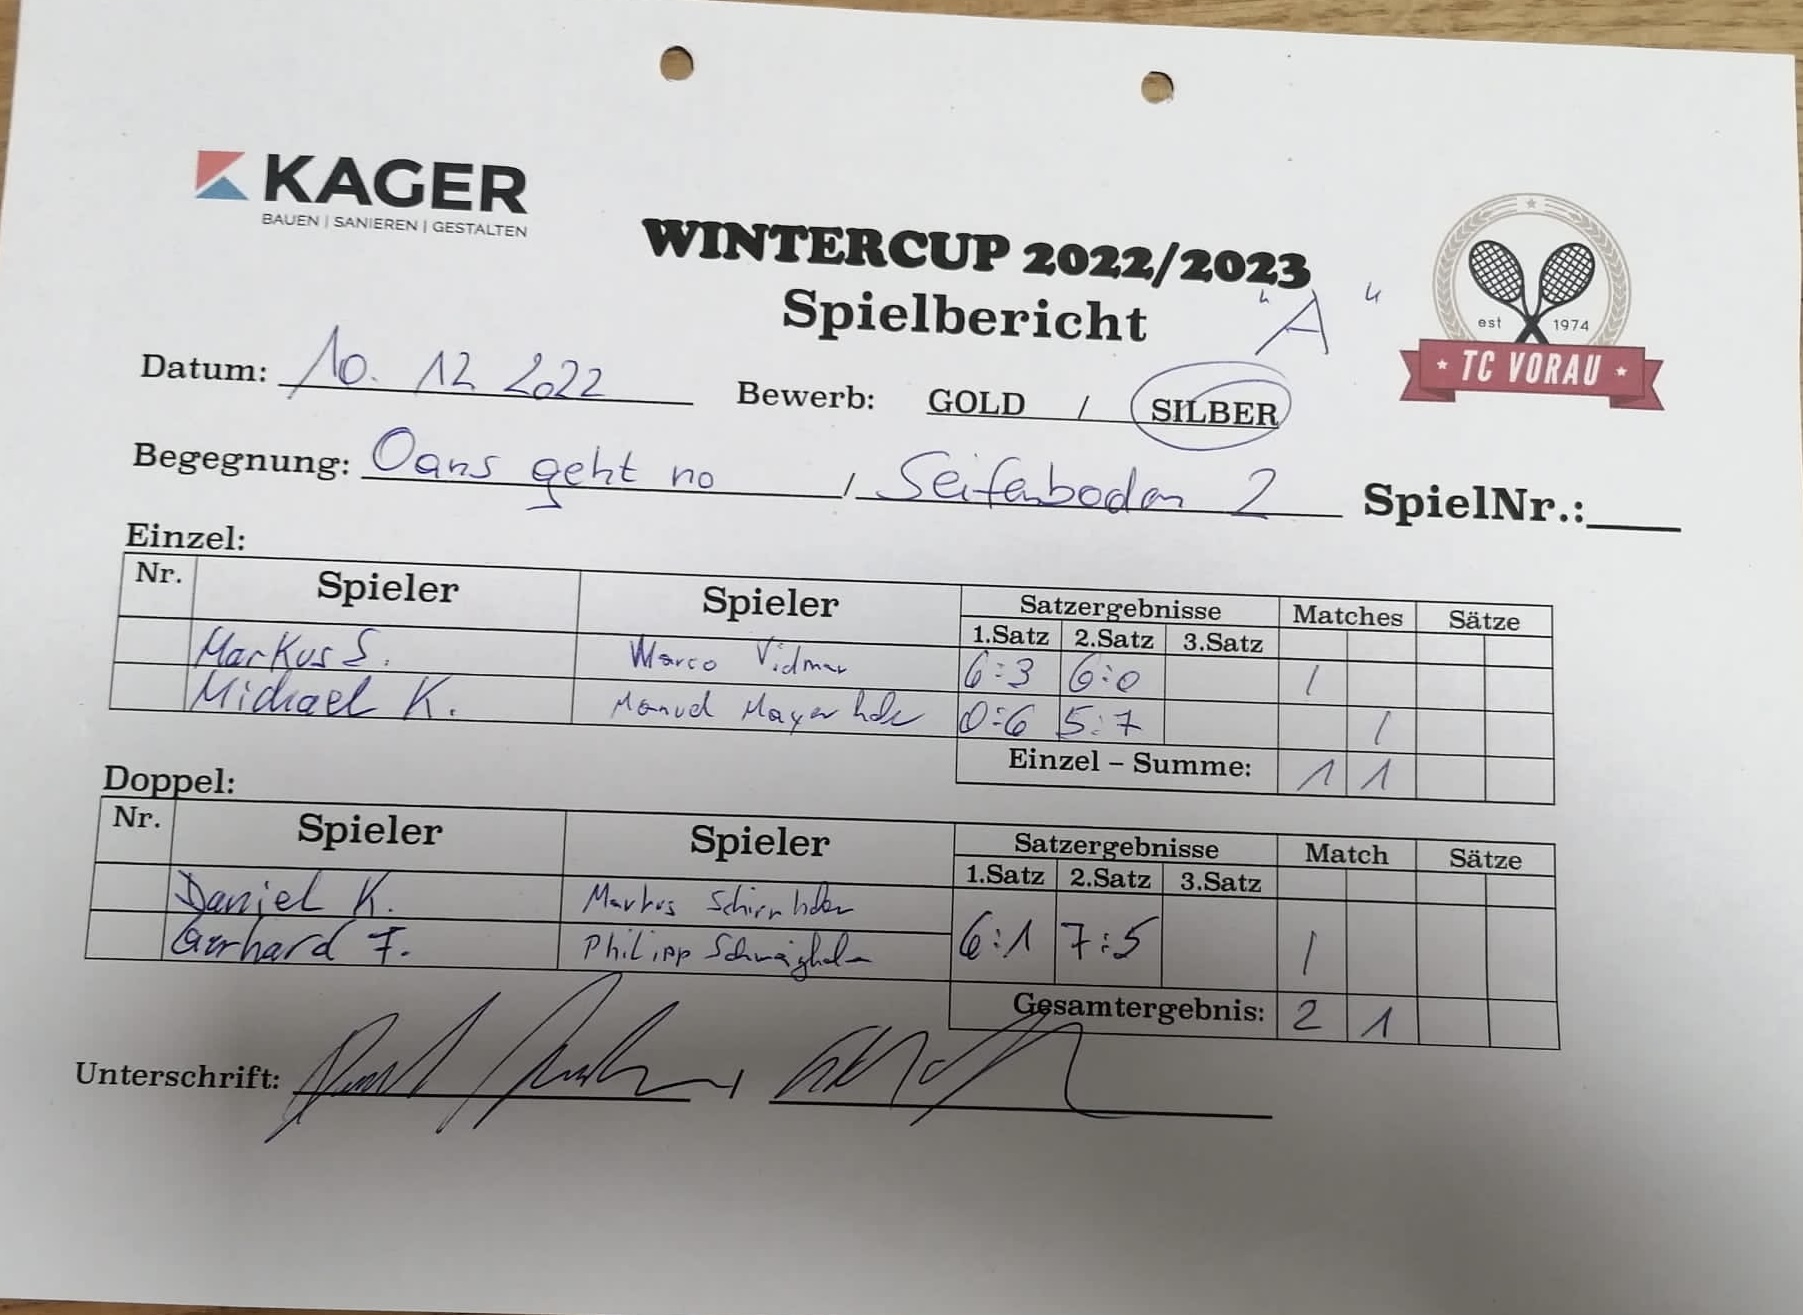 KAGER
BAUEN | SANIEREN | GESTALTEN
WINTERCUP 2022/2023
Spielbericht "A"
est 1974
TC VORAU
Datum: 10. 12 2022 Bewerb: GOLD / SILBER
Begegnung: Oans geht no / Seifenboden 2 SpielNr.:
Einzel:
Nr. Spieler Spieler Satzergebnisse Matches Sätze
1.Satz 2.Satz 3.Satz
Markus S. Marco Vidmar 6:3 6:0 /
Michael K. Manuel Mayerhofer 0:6 5:7 /
Einzel – Summe: 1 1
Doppel:
Nr. Spieler Spieler Satzergebnisse Match Sätze
1.Satz 2.Satz 3.Satz
Daniel K. Markus
Gerhard F. Philipp 6:1 7:5 /
Gesamtergebnis: 2 1
Unterschrift: